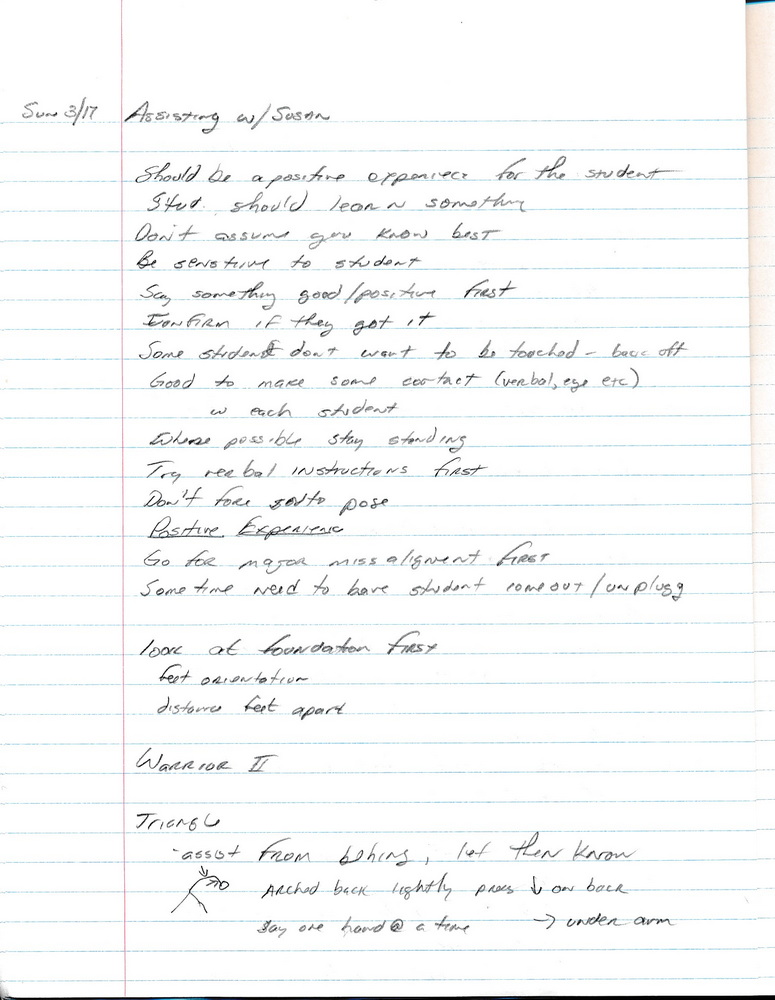 Sun 3/17 Assisting w/ Susan
Should be a positive experience for the student
Stud. should learn something
Don't assume you know best
Be senstive to student
Say something good/positive first
Confirm if they got it
Some students don't want to be touched - back off
Good to make some contact (verbal, eye etc)
w each student
Where possible stay standing
Try verbal instructions first
Don't force pose
Positive Experience
Go for major missalignment FIRST
Some time need to have student come out / unplugg
look at foundation first
feet orientation
distance feet apart
WARRIOR II
TRIANGLE
-assist from behind, let them know
Arched back lightly press ↓ on back
Say one hand @ a time → under arm